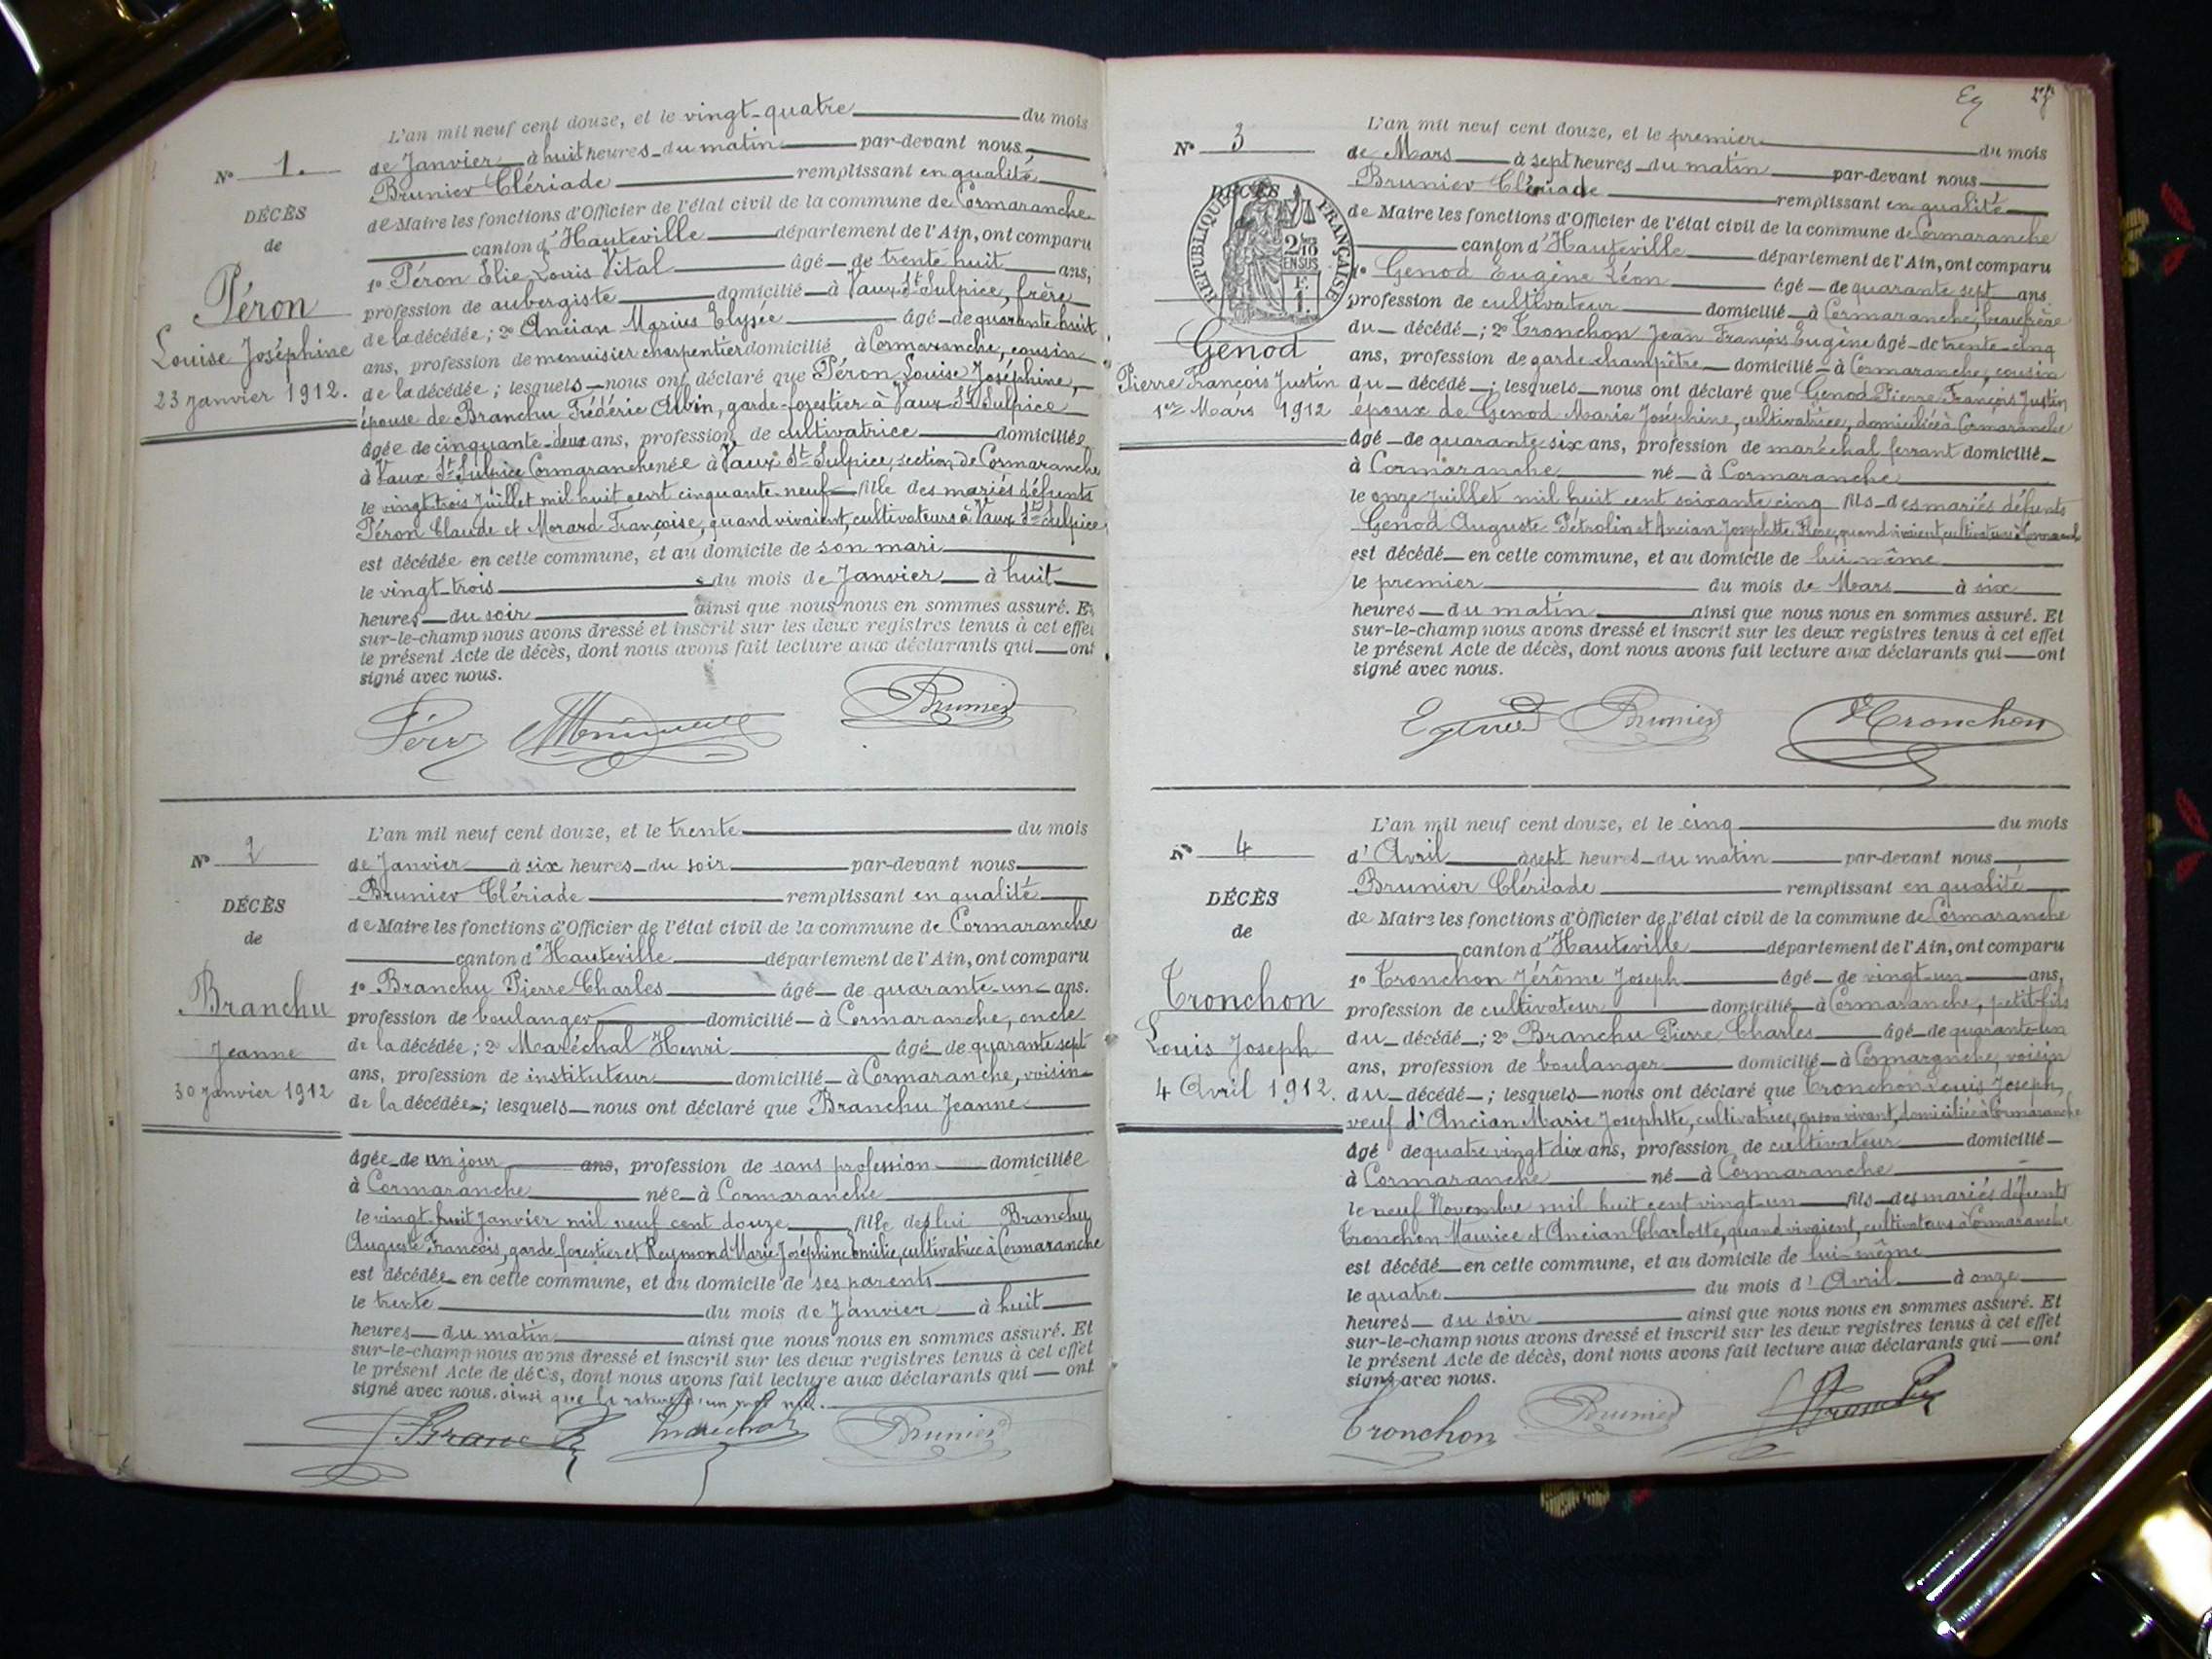 L'an mil neuf cent douze, et le vingt-quatre du mois
N° 1. de Janvier à huit heures du matin par-devant nous
Brunier Clériade remplissant en qualité
DÉCÈS de Maire les fonctions d'Officier de l'état civil de la commune de Cormaranche
de canton d'Hauteville département de l'Ain, ont comparu
1° Péron Élie Louis Vital âgé de trente huit ans,
Péron profession de aubergiste domicilié à Vaux St Sulpice, frère
de la décédée; 2° Ancian Marius Elysée âgé de quarante huit
Louise Joséphine ans, profession de menuisier charpentier domicilié à Cormaranche, cousin
23 Janvier 1912. de la décédée; lesquels nous ont déclaré que Péron Louise Joséphine,
épouse de Branchu Frédéric Albin, garde-forestier à Vaux St Sulpice
âgée de cinquante-deux ans, profession de cultivatrice domiciliée
à Vaux St Sulpice Cormaranche née à Vaux St Sulpice, section de Cormaranche
le vingt trois Juillet mil huit cent cinquante-neuf fille des mariés défunts
Péron Claude et Morard Françoise, quand vivaient, cultivateurs à Vaux St Sulpice
est décédée en cette commune, et au domicile de son mari
le vingt-trois du mois de Janvier à huit
heures du soir ainsi que nous nous en sommes assuré. Et
sur-le-champ nous avons dressé et inscrit sur les deux registres tenus à cet effet
le présent Acte de décès, dont nous avons fait lecture aux déclarants qui ont
signé avec nous.
Péron Brunier
L'an mil neuf cent douze, et le trente du mois
N° 2 de Janvier à six heures du soir par-devant nous
Brunier Clériade remplissant en qualité
DÉCÈS de Maire les fonctions d'Officier de l'état civil de la commune de Cormaranche
de canton d'Hauteville département de l'Ain, ont comparu
1° Branchu Pierre Charles âgé de quarante-un ans.
Branchu profession de boulanger domicilié à Cormaranche, oncle
Jeanne de la décédée; 2° Maréchal Henri âgé de quarante sept
ans, profession de instituteur domicilié à Cormaranche, voisin
30 Janvier 1912 de la décédée; lesquels nous ont déclaré que Branchu Jeanne
âgée de un jour ans, profession de sans profession domiciliée
à Cormaranche née à Cormaranche
le vingt-huit Janvier mil neuf cent douze fille des lui Branchu
Auguste François, garde forestier et Reymond Marie Joséphine Emilie, cultivatrice à Cormaranche
est décédée en cette commune, et au domicile de ses parents
le trente du mois de Janvier à huit
heures du matin ainsi que nous nous en sommes assuré. Et
sur-le-champ nous avons dressé et inscrit sur les deux registres tenus à cet effet
le présent Acte de décès, dont nous avons fait lecture aux déclarants qui ont
signé avec nous. ainsi que la rature d'un mot nul.
Branchu Maréchal Brunier
L'an mil neuf cent douze, et le premier du mois
N° 3 de Mars à sept heures du matin par-devant nous
Brunier Clériade remplissant en qualité
DÉCÈS de Maire les fonctions d'Officier de l'état civil de la commune de Cormaranche
RÉPUBLIQUE FRANÇAISE
canton d'Hauteville département de l'Ain, ont comparu
1° Genod Eugène Léon âgé de quarante sept ans.
profession de cultivateur domicilié à Cormaranche, beau frère
du décédé; 2° Tronchon Jean François Eugène âgé de trente-cinq
Genod ans, profession de garde-champêtre domicilié à Cormaranche, cousin
Pierre François Justin du décédé; lesquels nous ont déclaré que Genod Pierre François Justin
1er Mars 1912 époux de Genod Marie Joséphine, cultivatrice, domiciliée à Cormaranche
âgé de quarante-six ans, profession de maréchal ferrant domicilié
à Cormaranche né à Cormaranche
le onze Juillet mil huit cent soixante cinq fils des mariés défunts
Genod Auguste Pétrolin et Ancian Josephtte quand vivaient, cultivateurs à Cormaranche
est décédé en cette commune, et au domicile de lui-même
le premier du mois de Mars à six
heures du matin ainsi que nous nous en sommes assuré. Et
sur-le-champ nous avons dressé et inscrit sur les deux registres tenus à cet effet
le présent Acte de décès, dont nous avons fait lecture aux déclarants qui ont
signé avec nous.
Brunier Tronchon
L'an mil neuf cent douze, et le cinq du mois
N° 4 d'Avril à sept heures du matin par-devant nous
Brunier Clériade remplissant en qualité
DÉCÈS de Maire les fonctions d'Officier de l'état civil de la commune de Cormaranche
de canton d'Hauteville département de l'Ain, ont comparu
1° Tronchon Jérôme Joseph âgé de vingt-un ans,
Tronchon profession de cultivateur domicilié à Cormaranche, petit-fils
du décédé; 2° Branchu Pierre Charles âgé de quarante-un
Louis Joseph ans, profession de boulanger domicilié à Cormaranche, voisin
4 Avril 1912. du décédé; lesquels nous ont déclaré que Tronchon Louis Joseph,
veuf d'Ancian Marie Josephtte, cultivatrice, en son vivant, domiciliée à Cormaranche
âgé de quatre vingt dix ans, profession de cultivateur domicilié
à Cormaranche né à Cormaranche
le neuf Novembre mil huit cent vingt-un fils des mariés défunts
Tronchon Maurice et Ancian Charlotte, quand vivaient, cultivateurs à Cormaranche
est décédé en cette commune, et au domicile de lui-même
le quatre du mois d'Avril à onze
heures du soir ainsi que nous nous en sommes assuré. Et
sur-le-champ nous avons dressé et inscrit sur les deux registres tenus à cet effet
le présent Acte de décès, dont nous avons fait lecture aux déclarants qui ont
signé avec nous.
Tronchon Brunier Branchu